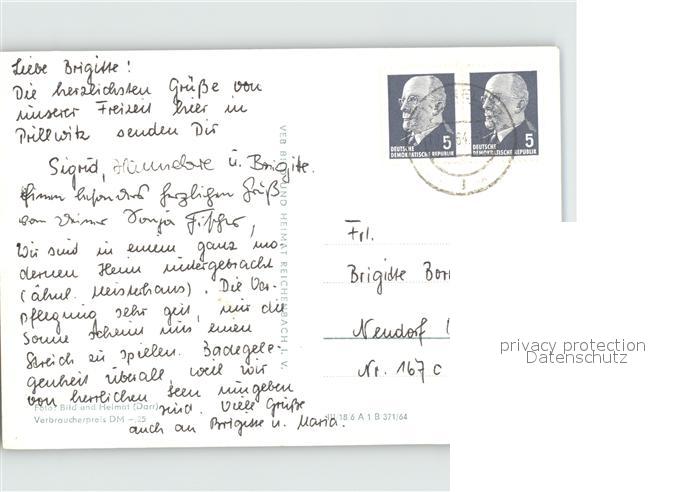 Liebe Brigitte!
Die herzlichsten Grüße von
unserer Freizeit hier in
Prillwitz senden Dir
Sigrid, Hannelore u. Brigitte.
Einen besonders herzlichen Gruß
von Deiner Sonja Fischer,
Wir sind in einem ganz mo-
dernen Heim untergebracht
(ähnl. Meisterhaus). Die Ver-
pflegung sehr gut, nur die
Sonne scheint uns einen
Streich zu spielen. Badegele-
genheit überall, weil wir
von herrlichen Seen umgeben
sind. Viele Grüße
auch an Brigitte u. Maria.
Foto: Bild und Heimat (Darr)
Verbraucherpreis DM -,25
VEB BILD UND HEIMAT REICHENBACH I. V.
III/18/6 A 1 B 371/64
5
DEUTSCHE
DEMOKRATISCHE REPUBLIK
5
DEUTSCHE
DEMOKRATISCHE REPUBLIK
Frl.
Brigitte
Neudorf
Nr. 167 c
privacy protection
Datenschutz